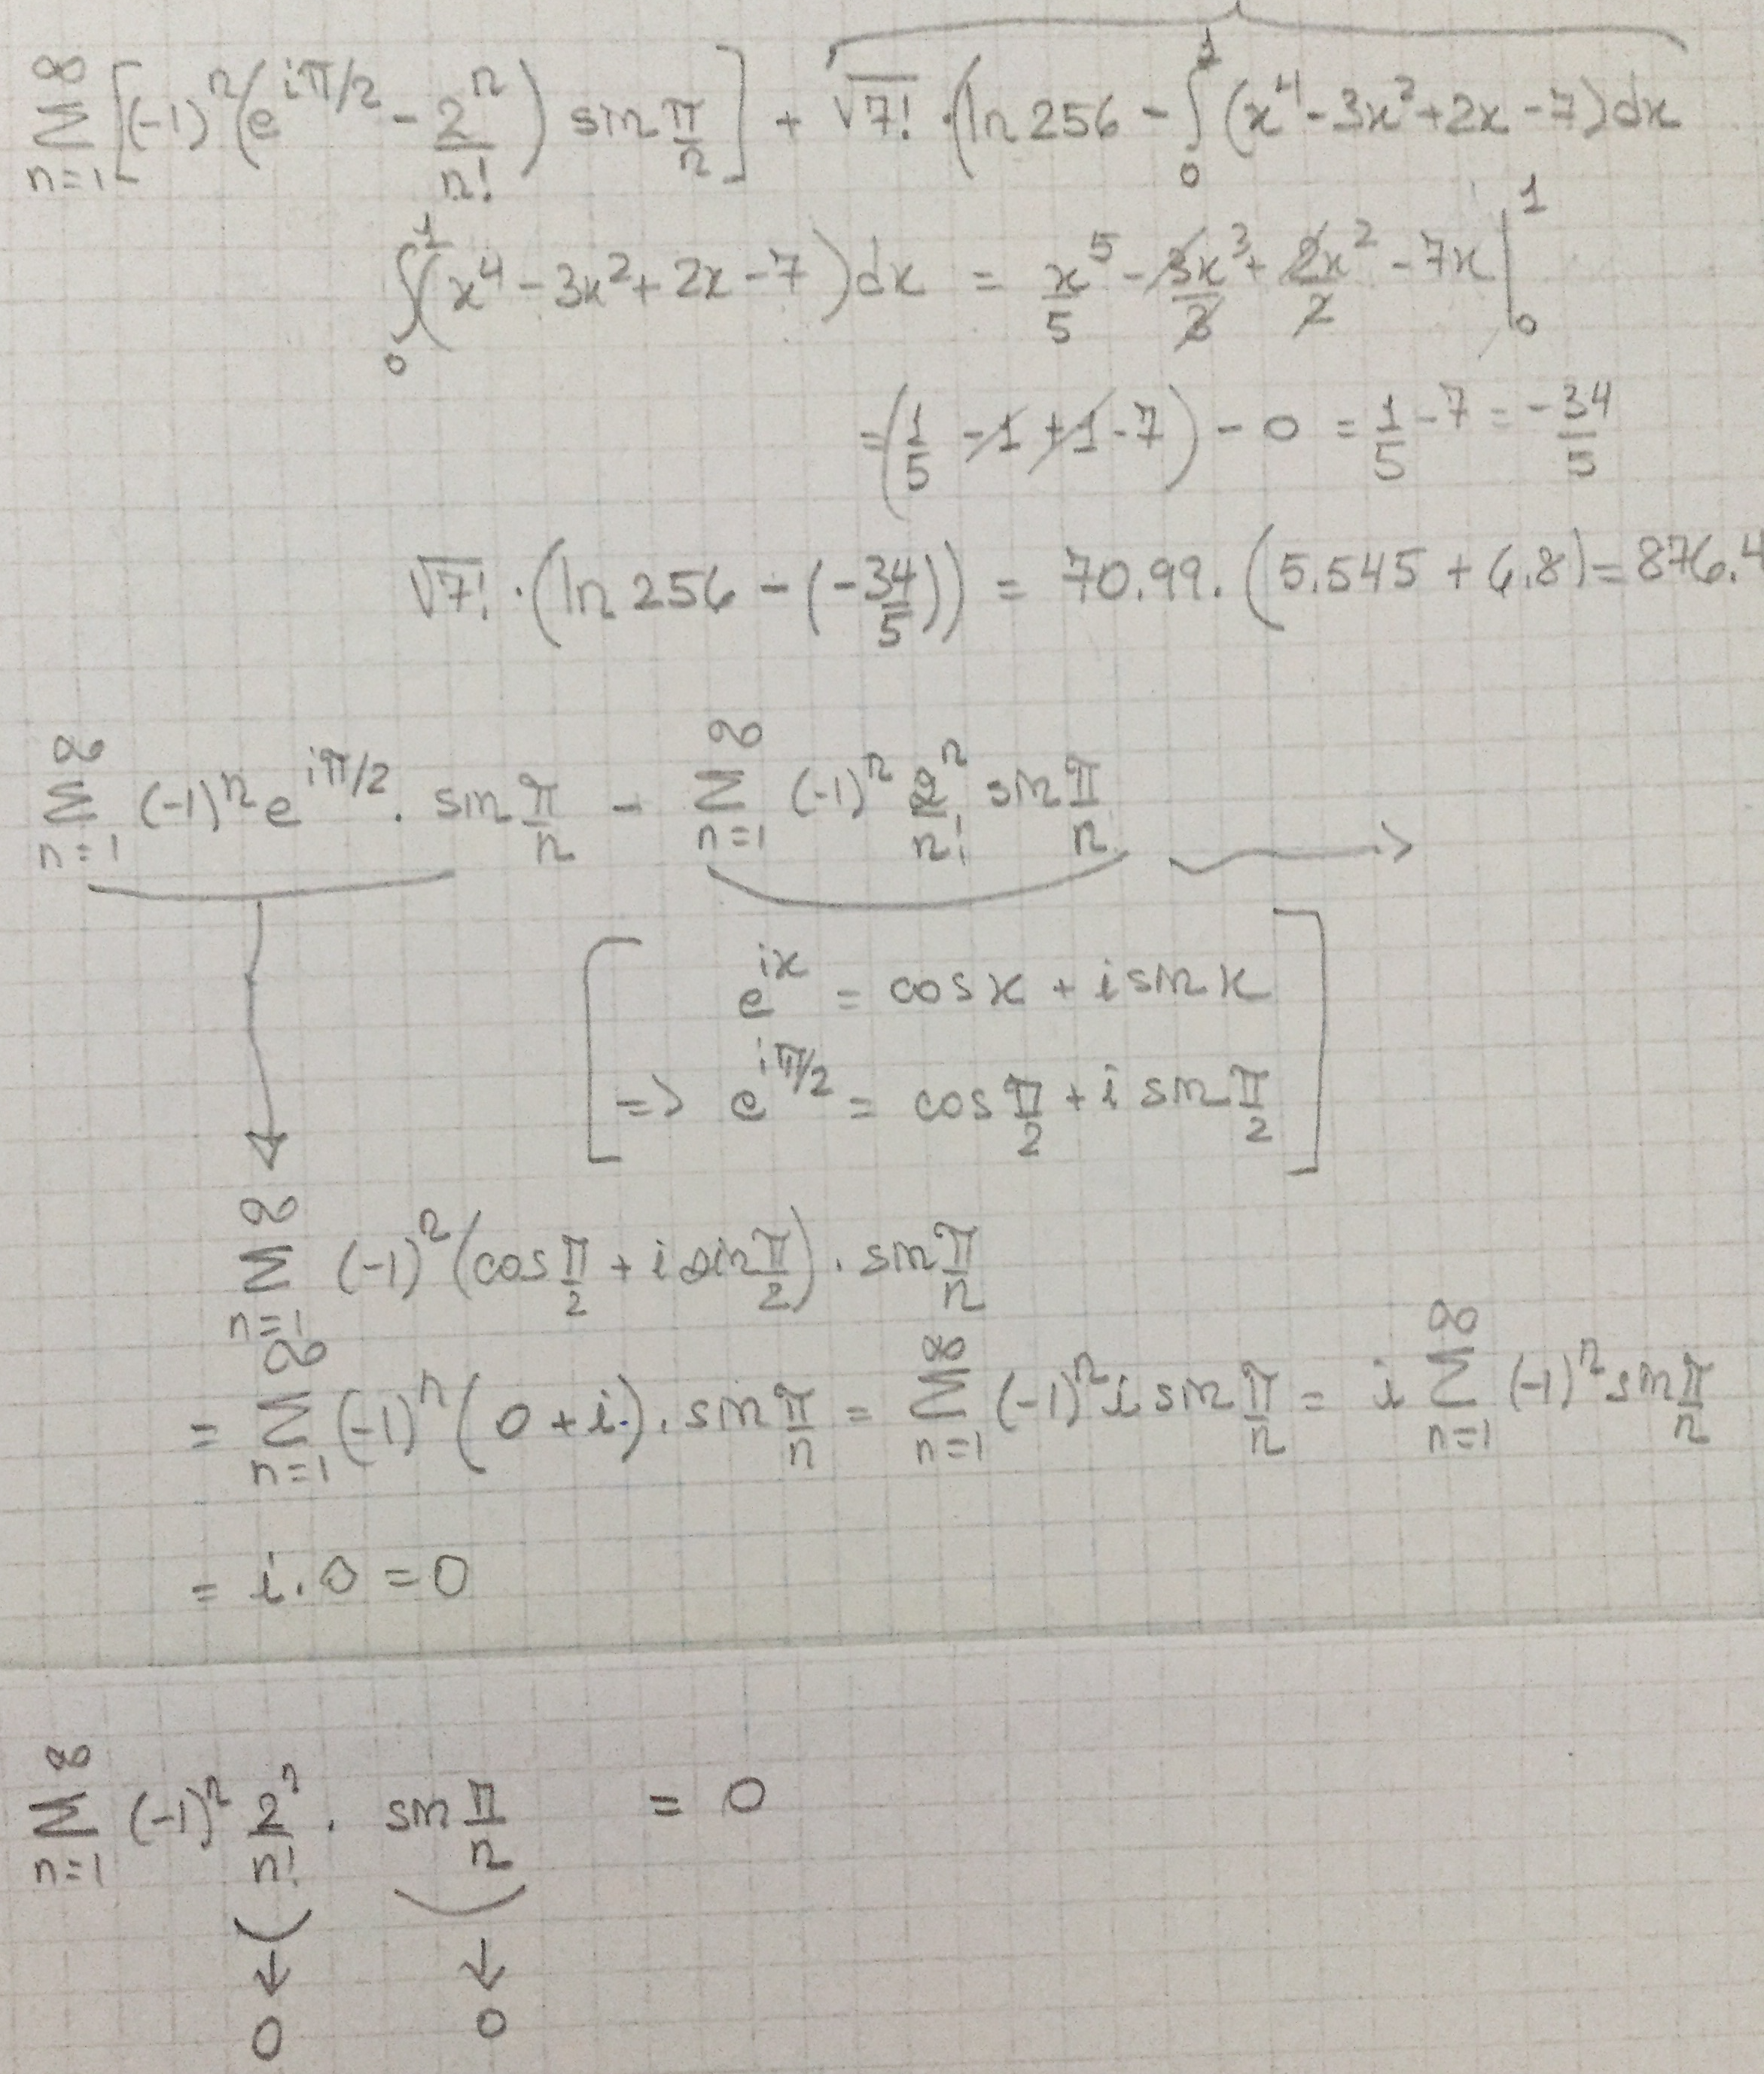 ∞∑n=1 [(-1)^n (e^{iπ/2} - 2^n/n!) sin π/n] + √7! · (ln 256 - ∫₀¹ (x⁴ - 3x² + 2x - 7) dx
∫₀¹ (x⁴ - 3x² + 2x - 7) dx = x⁵/5 - 3x³/3 + 2x²/2 - 7x |₀¹
= (1/5 - 1 + 1 - 7) - 0 = 1/5 - 7 = -34/5
√7! · (ln 256 - (-34/5)) = 70.99 · (5.545 + 6.8) = 876.4
∞∑n=1 (-1)^n e^{iπ/2} · sin π/n - ∞∑n=1 (-1)^n 2^n/n! sin π/n →
e^{ix} = cos x + i sin x
=> e^{iπ/2} = cos π/2 + i sin π/2
∞∑n=1 (-1)^n (cos π/2 + i sin π/2) · sin π/n
= ∞∑n=1 (-1)^n (0 + i) · sin π/n = ∞∑n=1 (-1)^n i sin π/n = i ∞∑n=1 (-1)^n sin π/n
= i · 0 = 0
∞∑n=1 (-1)^n 2^n/n! · sin π/n = 0
↓ ↓
0 0